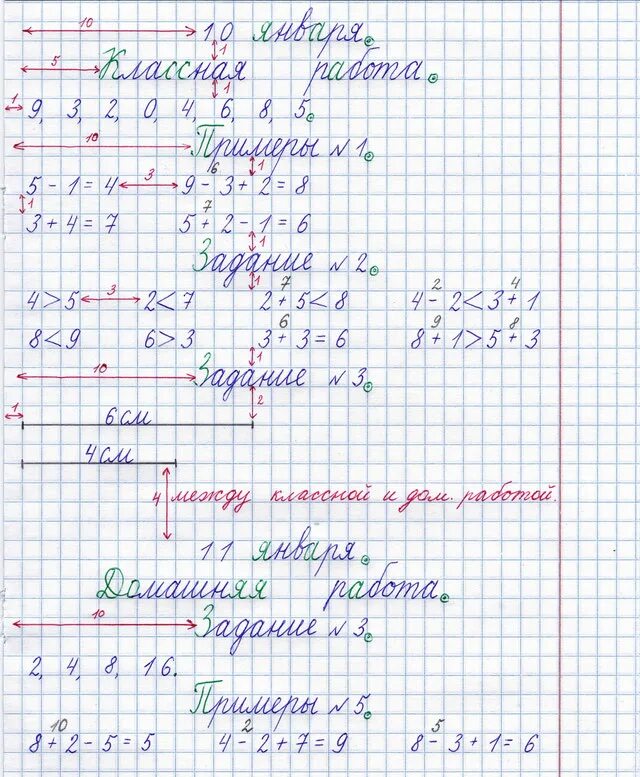 10 10 января.
1
5 Классная работа.
1
1 9, 3, 2, 0, 4, 6, 8, 5.
10 Примеры №1.
6 1
5 - 1 = 4 3 9 - 3 + 2 = 8
1 7
3 + 4 = 7 5 + 2 - 1 = 6
1
Задание №2.
1 7 2 4
4 > 5 3 2 < 7 2 + 5 < 8 4 - 2 < 3 + 1
6 9 8
8 < 9 6 > 3 3 + 3 = 6 8 + 1 > 5 + 3
1
10 Задание №3.
1 6 см 2
4 см
4 между классной и дом. работой.
11 января.
Домашняя работа.
10 Задание №3.
2, 4, 8, 16.
Примеры №5.
10 2 5
8 + 2 - 5 = 5 4 - 2 + 7 = 9 8 - 3 + 1 = 6